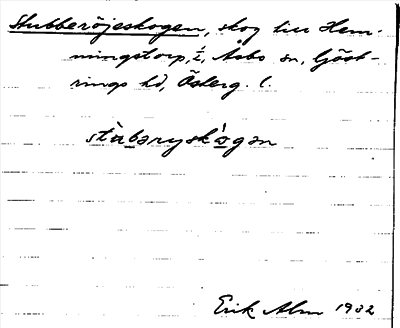 Stubberöjeskogen, skog till Hem-
mingstorp, Åsbo sn, Göst-
rings hd, Österg. l.
stùbaryskògan
Erik Alm 1932